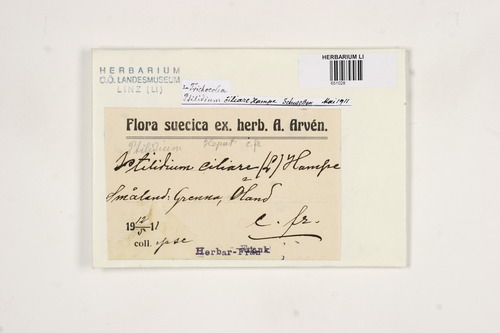 HERBARIUM
O.Ö. LANDESMUSEUM
LINZ (LI)
HERBARIUM LI
= Trichocolea
Ptilidium ciliare Hampe Mai 1911
Flora suecica ex. herb. A. Arvén.
Ptilidium Hepat c. fr
Ptilidium ciliare (L) Hampe
Småland: Grenna, Öland
c. fr.
19 12/5 11
coll. ipse
Herbar-Frank